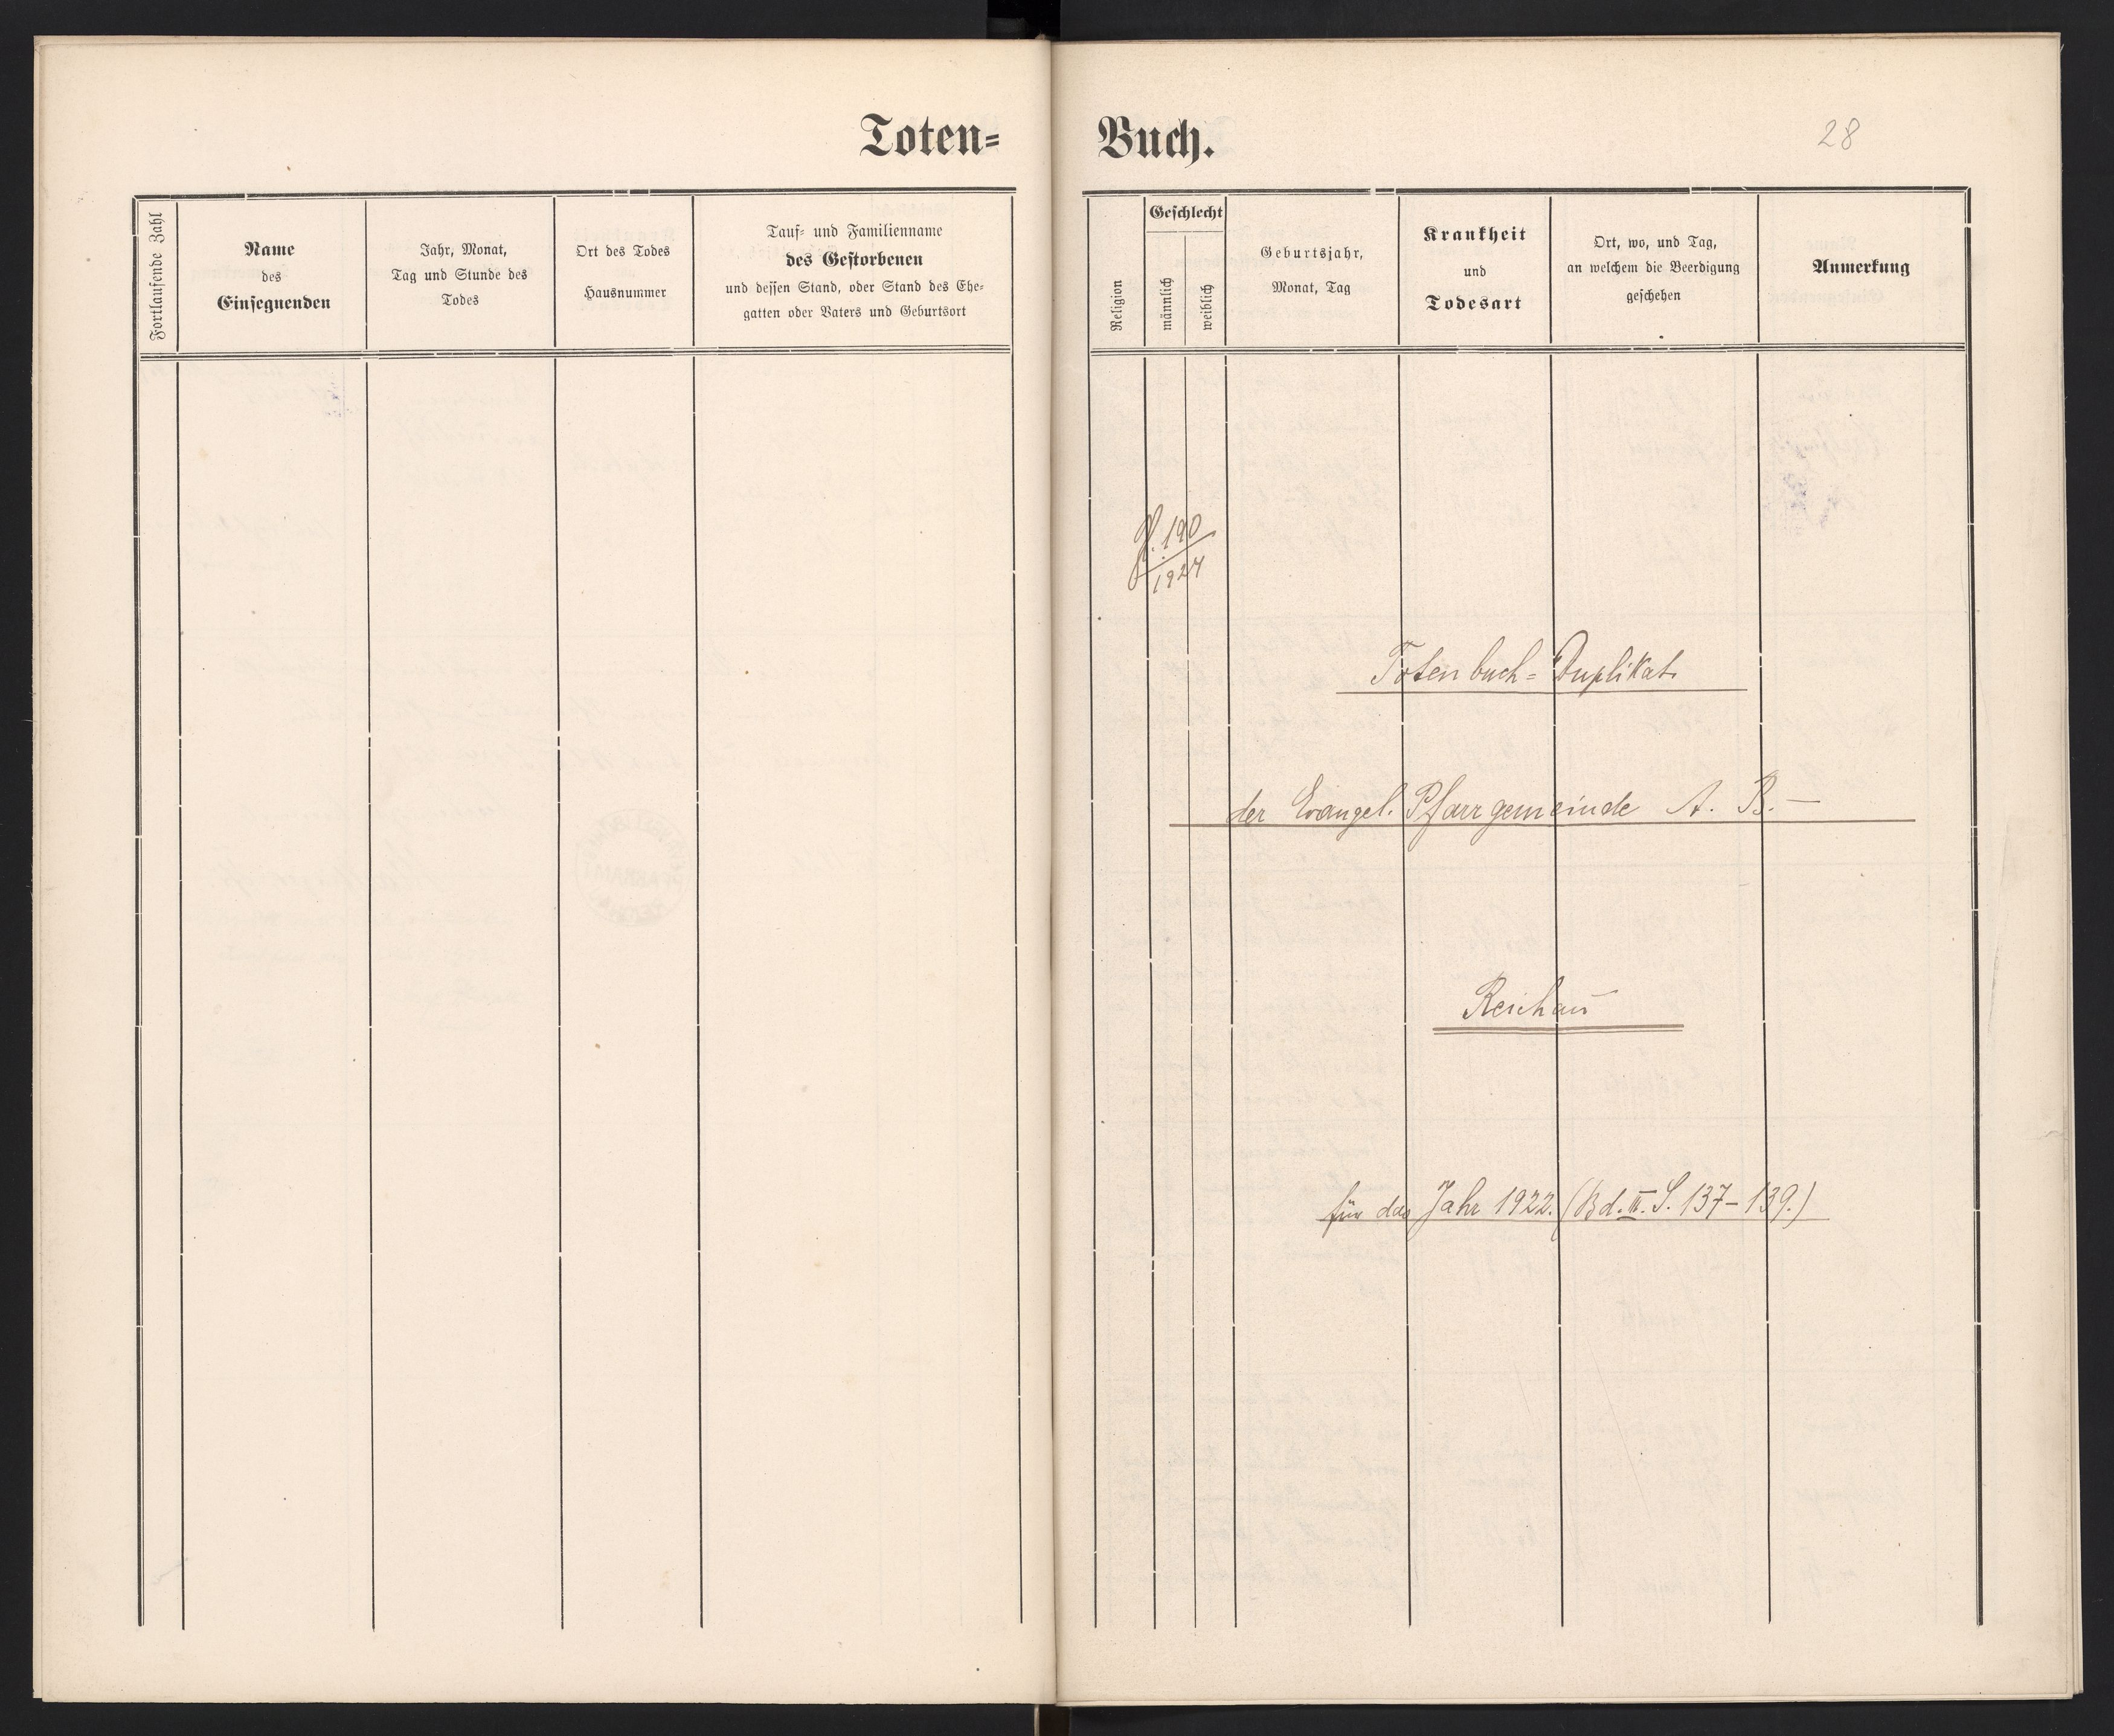 Toten= Buch.
28
Fortlaufende Zahl
Name
des
Einsegnenden
Jahr, Monat,
Tag und Stunde des
Todes
Ort des Todes
Hausnummer
Tauf- und Familienname
des Gestorbenen
und dessen Stand, oder Stand des Ehe-
gatten oder Vaters und Geburtsort
Religion
Geschlecht
männlich
weiblich
Geburtsjahr,
Monat, Tag
Krankheit
und
Todesart
Ort, wo, und Tag,
an welchem die Beerdigung
geschehen
Anmerkung
190
1924
Totenbuch=Duplikat
der Evangel. Pfarrgemeinde A. B. —
Reichau
für das Jahr 1922. (Bd. II. S. 137–139.)